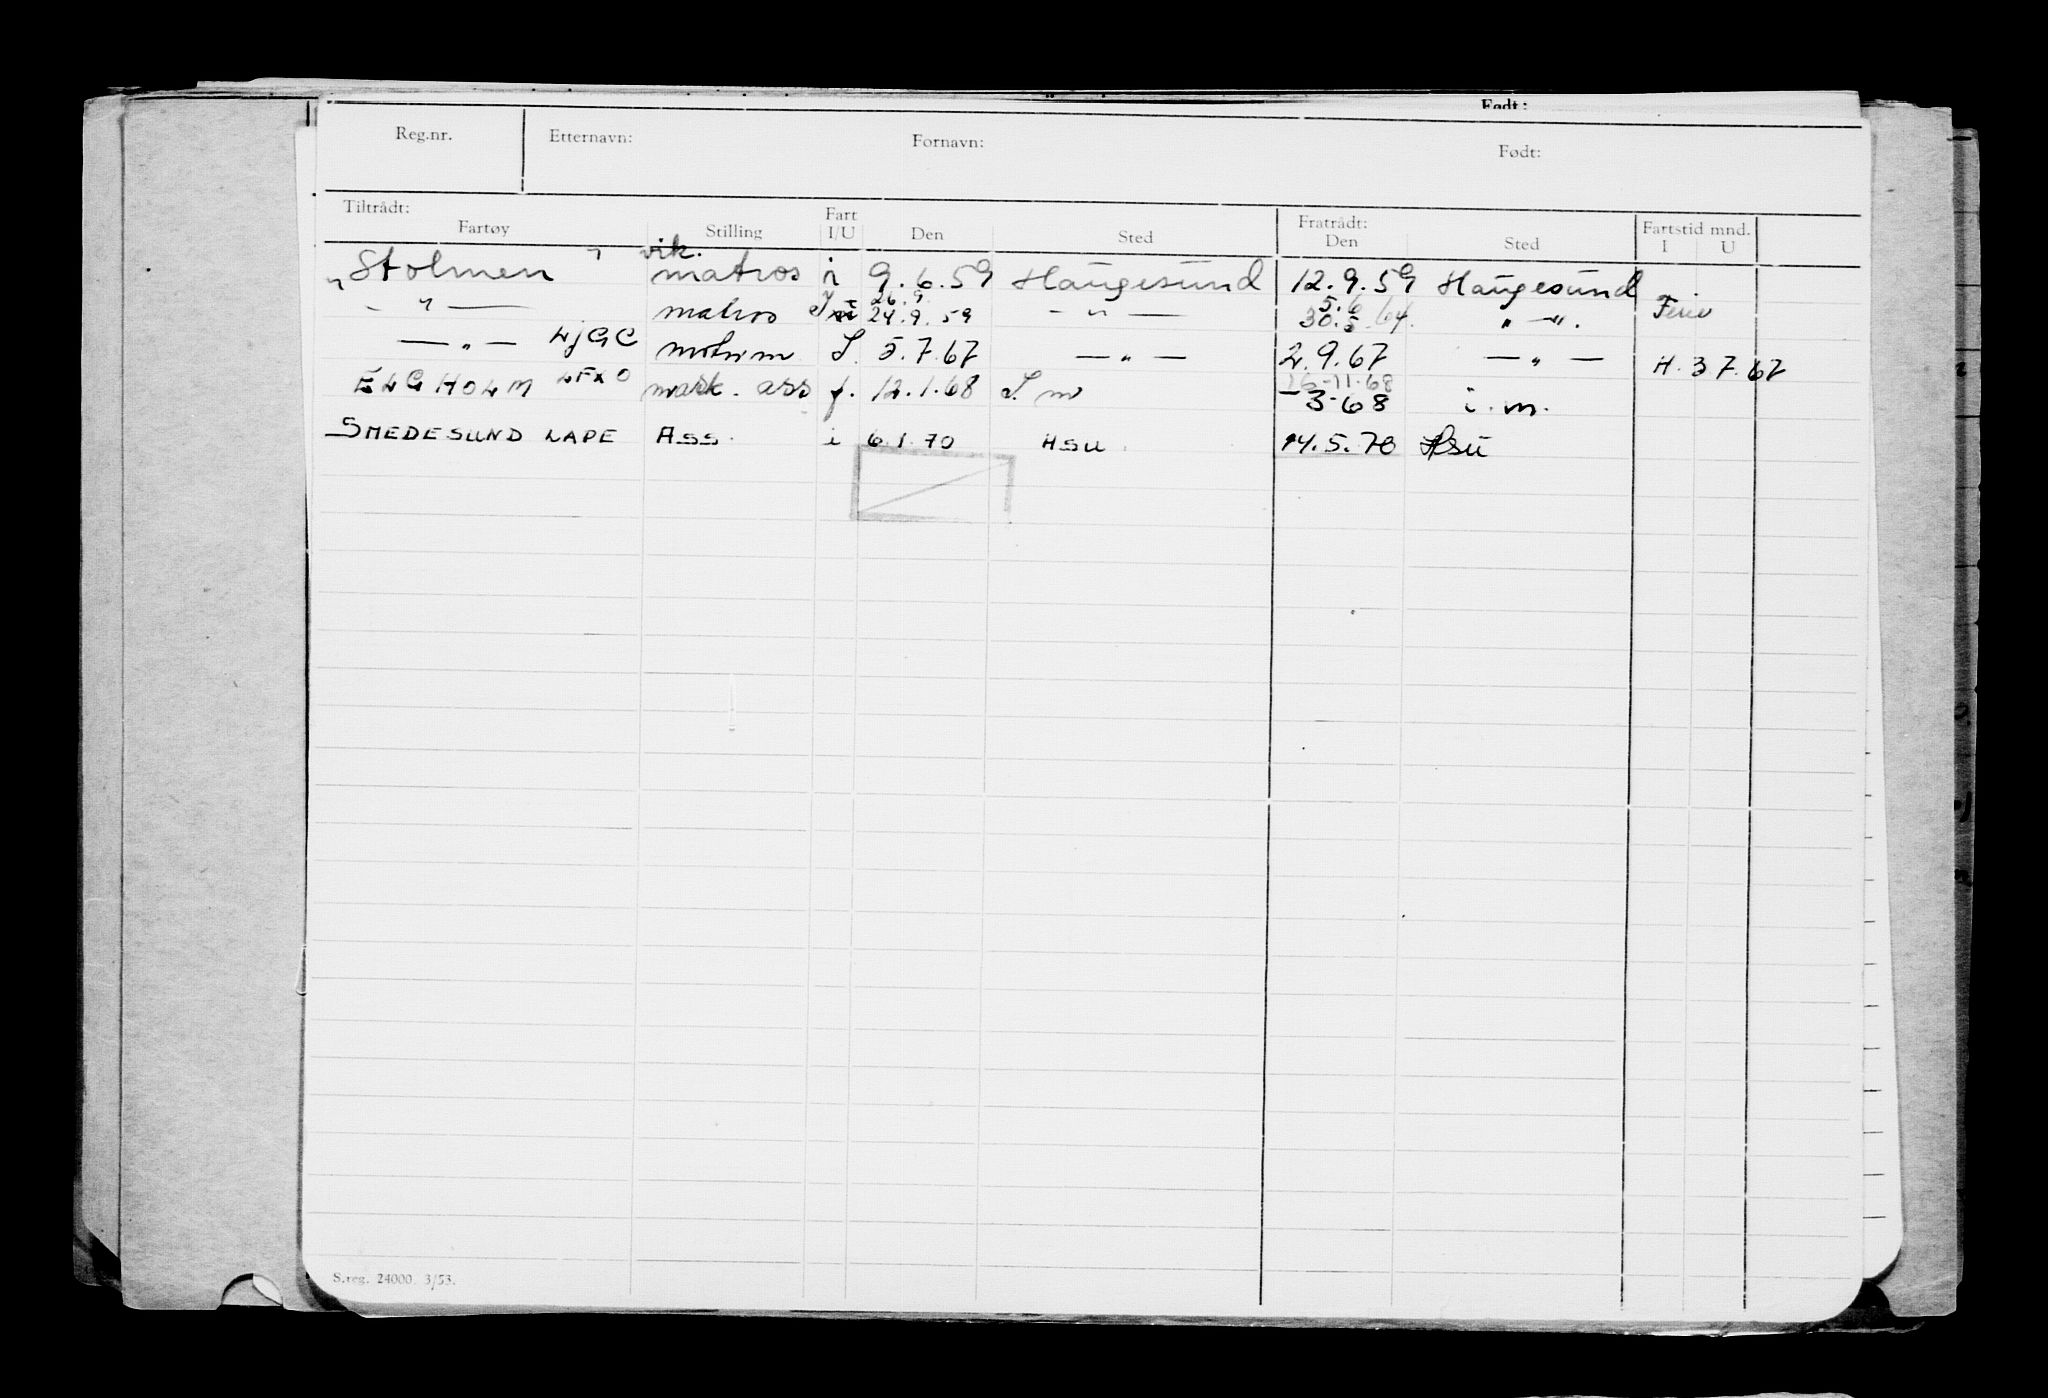 Født:
Reg.nr. Etternavn: Fornavn: Født:
Tiltrådt: Fratrådt:
Fartøy Stilling Fart I/U Den Sted Den Sted Fartstid mnd. I U
vik.
"Stolmen" matros i 9.6.59 Haugesund 12.9.59 Haugesund
26.9. 5.6
- " - matros 24.9.59 - " - 30.5.64. " - ". Ferie
- " - LJGC 5.7.67 - " - 2.9.67 - " - H. 3 7.67
16-11-68
ELGHOLM LFXO mask. ass f. 12.1.68 -3-68 i.m.
SMEDESUND LAPE Ass. i 6.1.70 HSU 14.5.70 HSU
S.reg. 24000. 3/53.